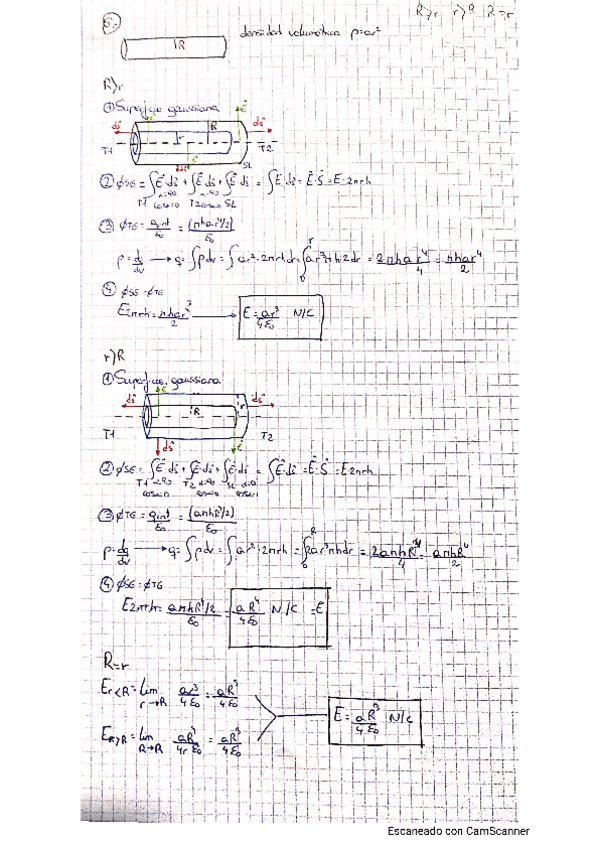 R>r r>R R=r
5.
R
densidad volumétrica ρ=ar²
R>r
① Superficie gaussiana
ds E R E ds
T1 r T2
ds E SL
② ϕSG = ∫E·ds + ∫E·ds + ∫E·ds = ∫E·ds = E·S = E·2πrh
T1 α=90 T2 α=90 SL
cos=0 cos=0
③ ϕTG = qint/ε₀ = (πhar⁴/2)/ε₀
ρ = dq/dv → q = ∫ρdv = ∫ar²·2πrhdr = ∫ar³πh2dr = 2πhar⁴/4 = πhar⁴/2
④ ϕSG = ϕTG
E2πrh = πhar³/2 → E = ar³/4ε₀ N/C
r>R
① Superficie gaussiana
ds E R r ds
T1 T2
ds E
② ϕSG = ∫E·ds + ∫E·ds + ∫E·ds = ∫E·ds = E·S = E2πrh
T1 α=90 T2 α=90 SL α=0
cos=0 cos=0 cos=1
③ ϕTG = qint/ε₀ = (aπhR⁴/2)/ε₀
ρ = dq/dv → q = ∫ρdv = ∫ar²·2πrh = ∫2ar³πhdr = 2aπhR⁴/4 = aπhR⁴/2
④ ϕSG = ϕTG
E2πrh = aπhR⁴/2/ε₀ aR⁴/4ε₀ N/C = E
R=r
Er<R = lim r→R ar³/4ε₀ = aR³/4ε₀
E = aR³/4ε₀ N/C
ER>R = lim R→R aR⁴/4rε₀ = aR³/4ε₀
Escaneado con CamScanner